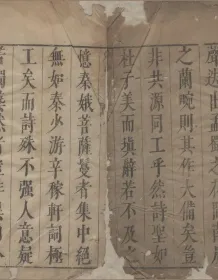 之蘭畹則其作大備矣豈
非共源同工乎然詩聖如
杜子美而填辭若不及之
憶秦娥菩薩蠻者集中絕
無如秦少游辛稼軒詞極
工矣而詩殊不强人意疑